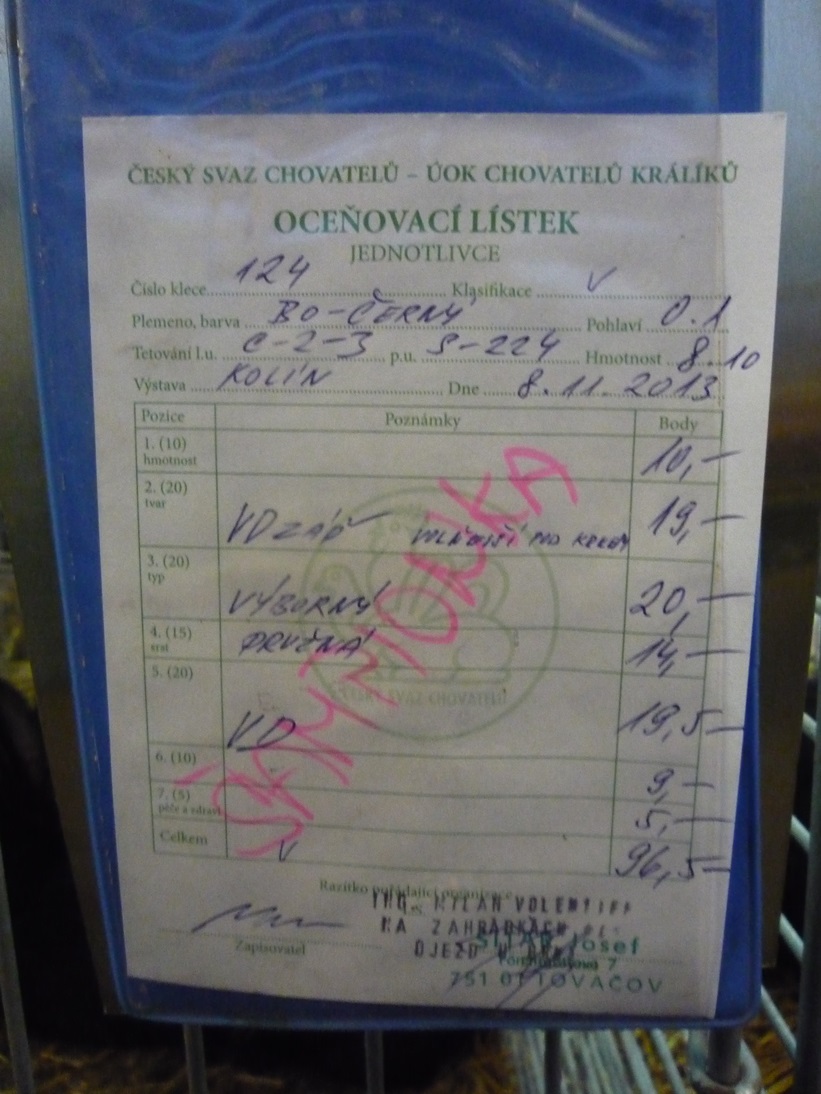 ČESKÝ SVAZ CHOVATELŮ – ÚOK CHOVATELŮ KRÁLÍKŮ
OCEŇOVACÍ LÍSTEK
JEDNOTLIVCE
Číslo klece 124 Klasifikace V
Plemeno, barva BO-ČERNÝ Pohlaví 0.1
Tetování l.u. C-2-3 p.u. S-224 Hmotnost 8.10
Výstava KOLÍN Dne 8.11.2013
Pozice Poznámky Body
1. (10) hmotnost 10,-
2. (20) tvar VD ZÁĎ POD KRKEM 19,-
3. (20) typ VÝBORNÝ 20,-
4. (15) srst PRUŽNÁ 14,-
5. (20) VD 19,5-
6. (10) 9,-
7. (5) péče a zdraví 5,-
Celkem V 96,5-
ŠAMPIONKA
ČESKÝ SVAZ CHOVATELŮ
Razítko pořádající organizace
ING. MILAN
NA ZAHRÁDKÁCH
ÚJEZD U
Josef
7
751 01 TOVAČOV
Zapisovatel